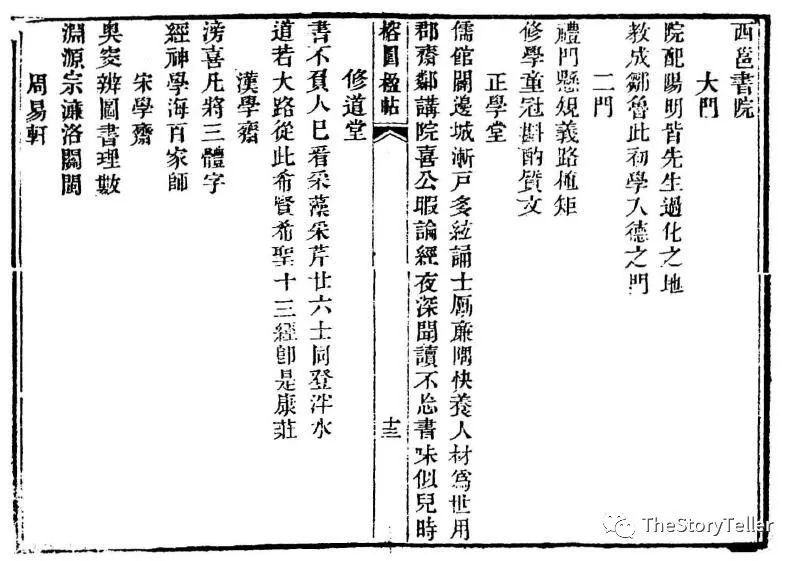 西邕書院
大門
院配陽明皆先生過化之地
教成鄒魯此初學入德之門
二門
禮門懸規義路植矩
修學童冠斟酌質文
正學堂
儒館闢邊城漸戸多絃誦士厲廉隅快養人材爲世用
郡齋鄰講院喜公暇論經夜深聞讀不忘書味似兒時
榕園楹帖
十三
修道堂
書不負人已看采藻采芹廿六士同登泮水
道若大路從此希賢希聖十三經卽是康莊
漢學齋
滂喜凡將三體字
經神學海百家師
宋學齋
奥窔辨圖書理數
淵源宗濂洛關閩
周易軒
TheStoryTeller